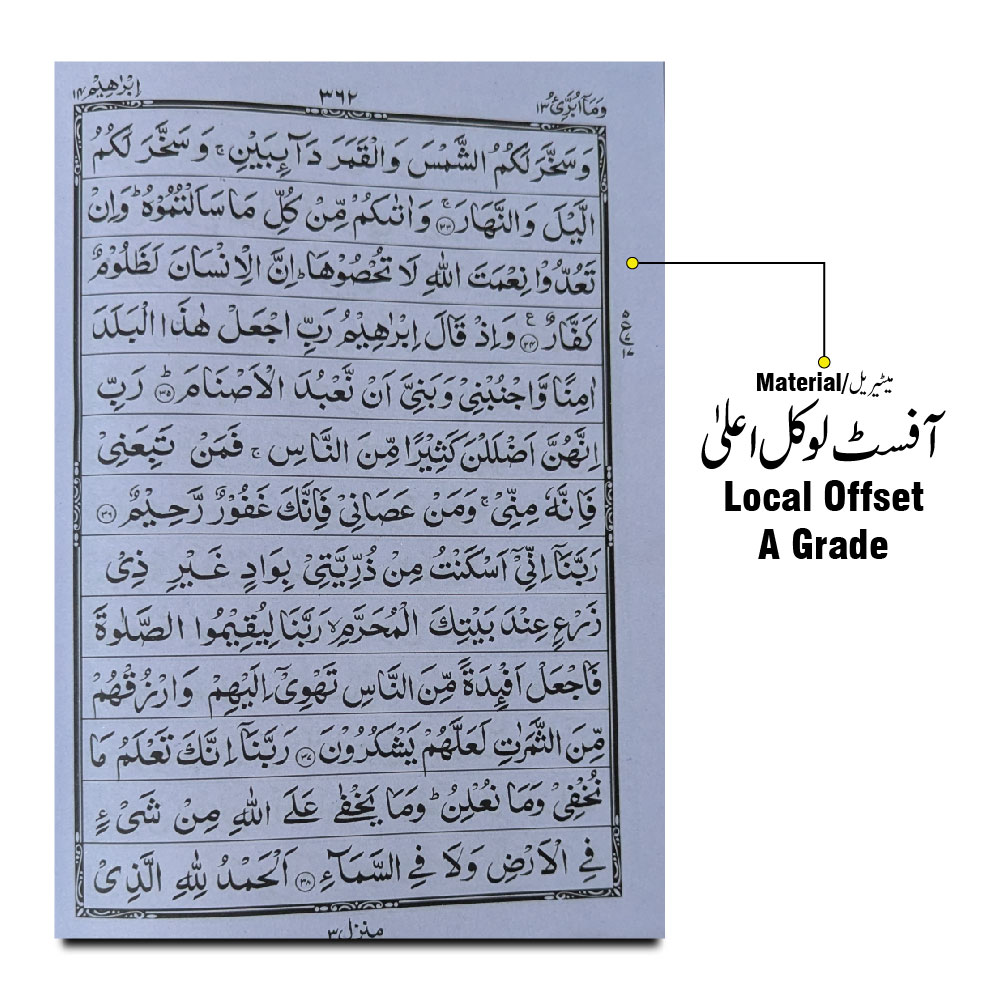 وَمَآ اُبَرِّئُ ١٣
٣٦٢
اِبْرٰهِيْمُ ١٤
وَسَخَّرَ لَكُمُ الشَّمْسَ وَالْقَمَرَ دَآئِبَيْنِ ۚ وَسَخَّرَ لَكُمُ
الَّيْلَ وَالنَّهَارَ ۚ ﴿٣٣﴾ وَاٰتٰىكُمْ مِّنْ كُلِّ مَا سَاَلْتُمُوْهُ ؕ وَاِنْ
تَعُدُّوْا نِعْمَتَ اللّٰهِ لَا تُحْصُوْهَا ؕ اِنَّ الْاِنْسَانَ لَظَلُوْمٌ
كَفَّارٌ ﴿٣٤﴾ ع وَاِذْ قَالَ اِبْرٰهِيْمُ رَبِّ اجْعَلْ هٰذَا الْبَلَدَ
اٰمِنًا وَّاجْنُبْنِيْ وَبَنِيَّ اَنْ نَّعْبُدَ الْاَصْنَامَ ؕ ﴿٣٥﴾ رَبِّ
اِنَّهُنَّ اَضْلَلْنَ كَثِيْرًا مِّنَ النَّاسِ ۚ فَمَنْ تَبِعَنِيْ
فَاِنَّهٗ مِنِّيْ ۚ وَمَنْ عَصَانِيْ فَاِنَّكَ غَفُوْرٌ رَّحِيْمٌ ﴿٣٦﴾
رَبَّنَآ اِنِّيْٓ اَسْكَنْتُ مِنْ ذُرِّيَّتِيْ بِوَادٍ غَيْرِ ذِيْ
زَرْعٍ عِنْدَ بَيْتِكَ الْمُحَرَّمِ ۙ رَبَّنَا لِيُقِيْمُوا الصَّلٰوةَ
فَاجْعَلْ اَفْـِٕدَةً مِّنَ النَّاسِ تَهْوِيْٓ اِلَيْهِمْ وَارْزُقْهُمْ
مِّنَ الثَّمَرٰتِ لَعَلَّهُمْ يَشْكُرُوْنَ ﴿٣٧﴾ رَبَّنَآ اِنَّكَ تَعْلَمُ مَا
نُخْفِيْ وَمَا نُعْلِنُ ؕ وَمَا يَخْفٰى عَلَى اللّٰهِ مِنْ شَيْءٍ
فِي الْاَرْضِ وَلَا فِي السَّمَآءِ ﴿٣٨﴾ اَلْحَمْدُ لِلّٰهِ الَّذِيْ
منزل ٣
Material/میٹیریل
آفسٹ لوکل اعلیٰ
Local Offset
A Grade